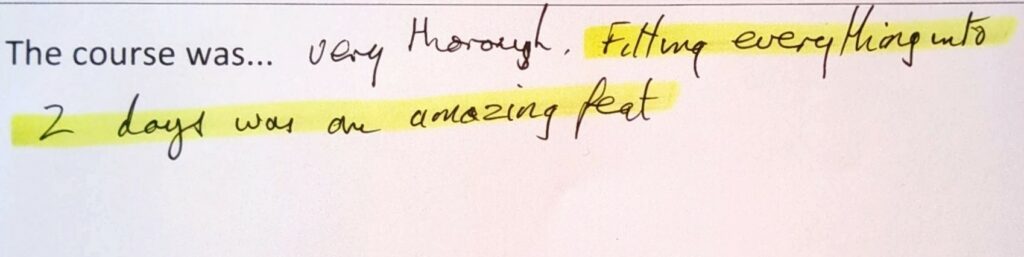 The course was... very thorough. Fitting everything into
2 days was an amazing feat